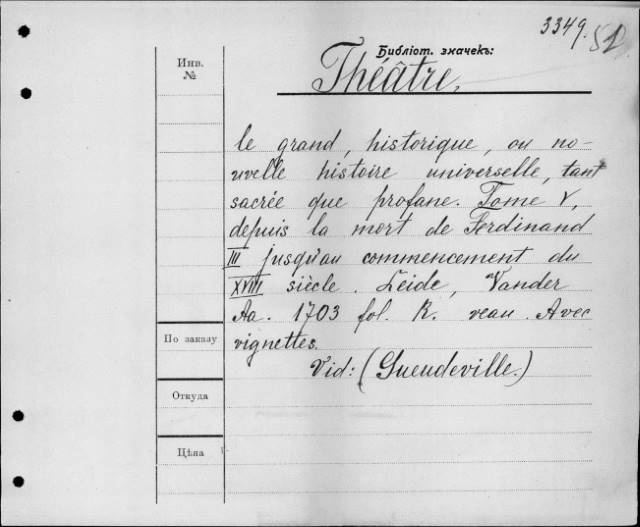 3349. 52
Библіот. значекъ:
Инв.
№
Théâtre,
le grand, historique, ou no-
uvelle histoire universelle, tant
sacrée que profane. Tome V,
depuis la mort de Ferdinand
III jusqu'au commencement du
XVIII siècle. Leide, Vander
Aa. 1703 fol. R. veau. Avec
vignettes.
Vid: (Gueudeville.)
По заказу
Откуда
Цѣна